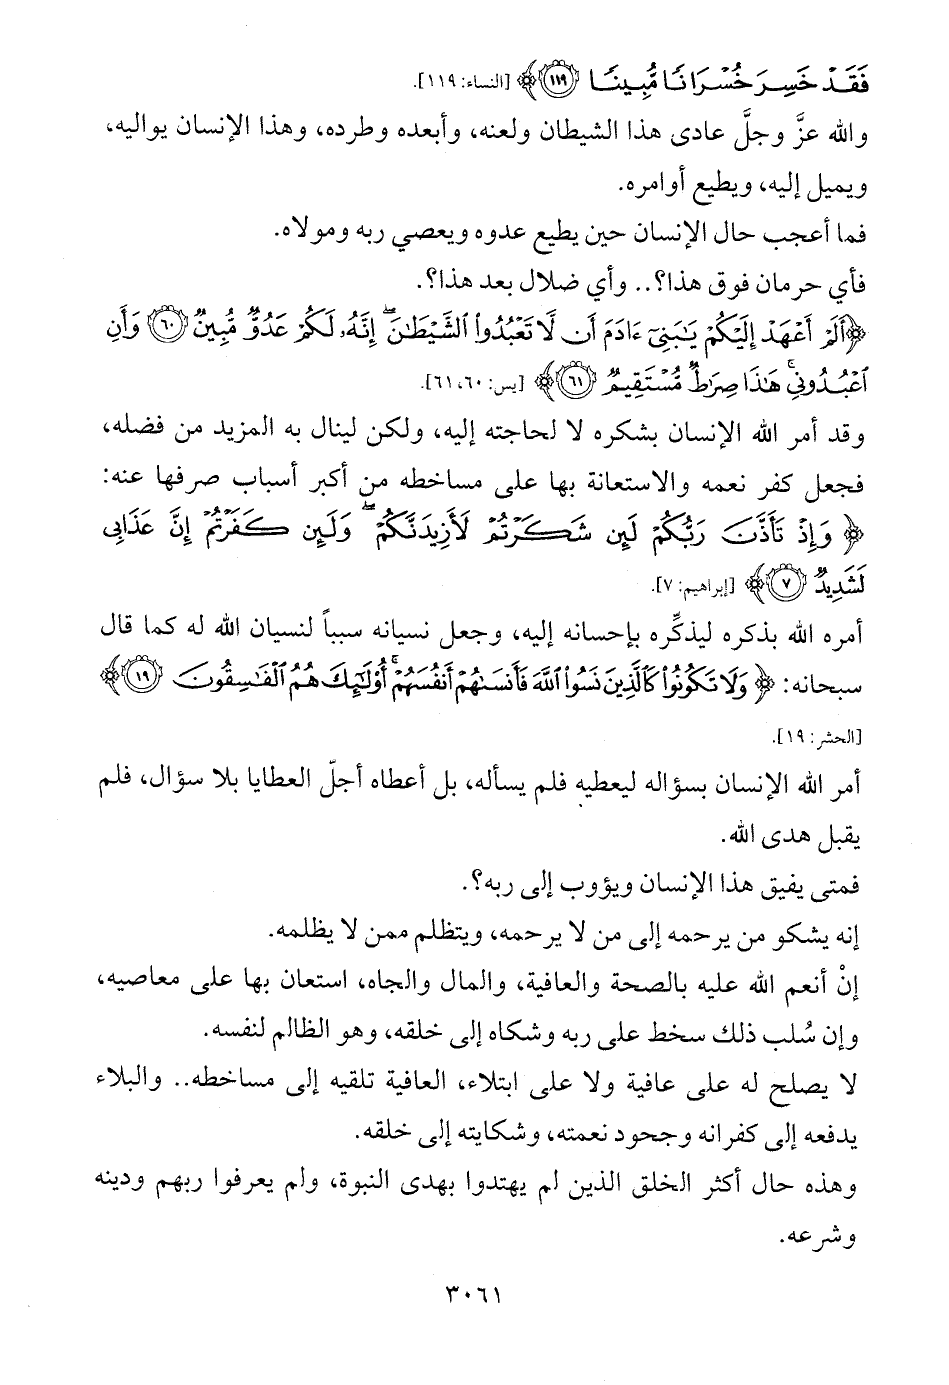 فَقَدْ خَسِرَ خُسْرَانًا مُّبِينًا ﴿١١٩﴾ [النساء: ١١٩].
والله عزَّ وجلَّ عادى هذا الشيطان ولعنه، وأبعده وطرده، وهذا الإنسان يواليه،
ويميل إليه، ويطيع أوامره.
فما أعجب حال الإنسان حين يطيع عدوه ويعصي ربه ومولاه.
فأي حرمان فوق هذا؟.. وأي ضلال بعد هذا؟.
﴿أَلَمْ أَعْهَدْ إِلَيْكُمْ يَٰبَنِىٓ ءَادَمَ أَن لَّا تَعْبُدُوا۟ ٱلشَّيْطَٰنَ ۖ إِنَّهُۥ لَكُمْ عَدُوٌّ مُّبِينٌ ﴿٦٠﴾ وَأَنِ
ٱعْبُدُونِى ۚ هَٰذَا صِرَٰطٌ مُّسْتَقِيمٌ ﴿٦١﴾ [يس: ٦٠، ٦١].
وقد أمر الله الإنسان بشكره لا لحاجته إليه، ولكن لينال به المزيد من فضله،
فجعل كفر نعمه والاستعانة بها على مساخطه من أكبر أسباب صرفها عنه:
﴿وَإِذْ تَأَذَّنَ رَبُّكُمْ لَئِن شَكَرْتُمْ لَأَزِيدَنَّكُمْ ۖ وَلَئِن كَفَرْتُمْ إِنَّ عَذَابِى
لَشَدِيدٌ ﴿٧﴾ [إبراهيم: ٧].
أمره الله بذكره ليذكِّره بإحسانه إليه، وجعل نسيانه سبباً لنسيان الله له كما قال
سبحانه: ﴿وَلَا تَكُونُوا۟ كَٱلَّذِينَ نَسُوا۟ ٱللَّهَ فَأَنسَىٰهُمْ أَنفُسَهُمْ ۚ أُو۟لَٰٓئِكَ هُمُ ٱلْفَٰسِقُونَ ﴿١٩﴾
[الحشر: ١٩].
أمر الله الإنسان بسؤاله ليعطيه فلم يسأله، بل أعطاه أجلّ العطايا بلا سؤال، فلم
يقبل هدى الله.
فمتى يفيق هذا الإنسان ويؤوب إلى ربه؟.
إنه يشكو من يرحمه إلى من لا يرحمه، ويتظلم ممن لا يظلمه.
إنْ أنعم الله عليه بالصحة والعافية، والمال والجاه، استعان بها على معاصيه،
وإن سُلب ذلك سخط على ربه وشكاه إلى خلقه، وهو الظالم لنفسه.
لا يصلح له على عافية ولا على ابتلاء، العافية تلقيه إلى مساخطه.. والبلاء
يدفعه إلى كفرانه وجحود نعمته، وشكايته إلى خلقه.
وهذه حال أكثر الخلق الذين لم يهتدوا بهدى النبوة، ولم يعرفوا ربهم ودينه
وشرعه.
٣٠٦١